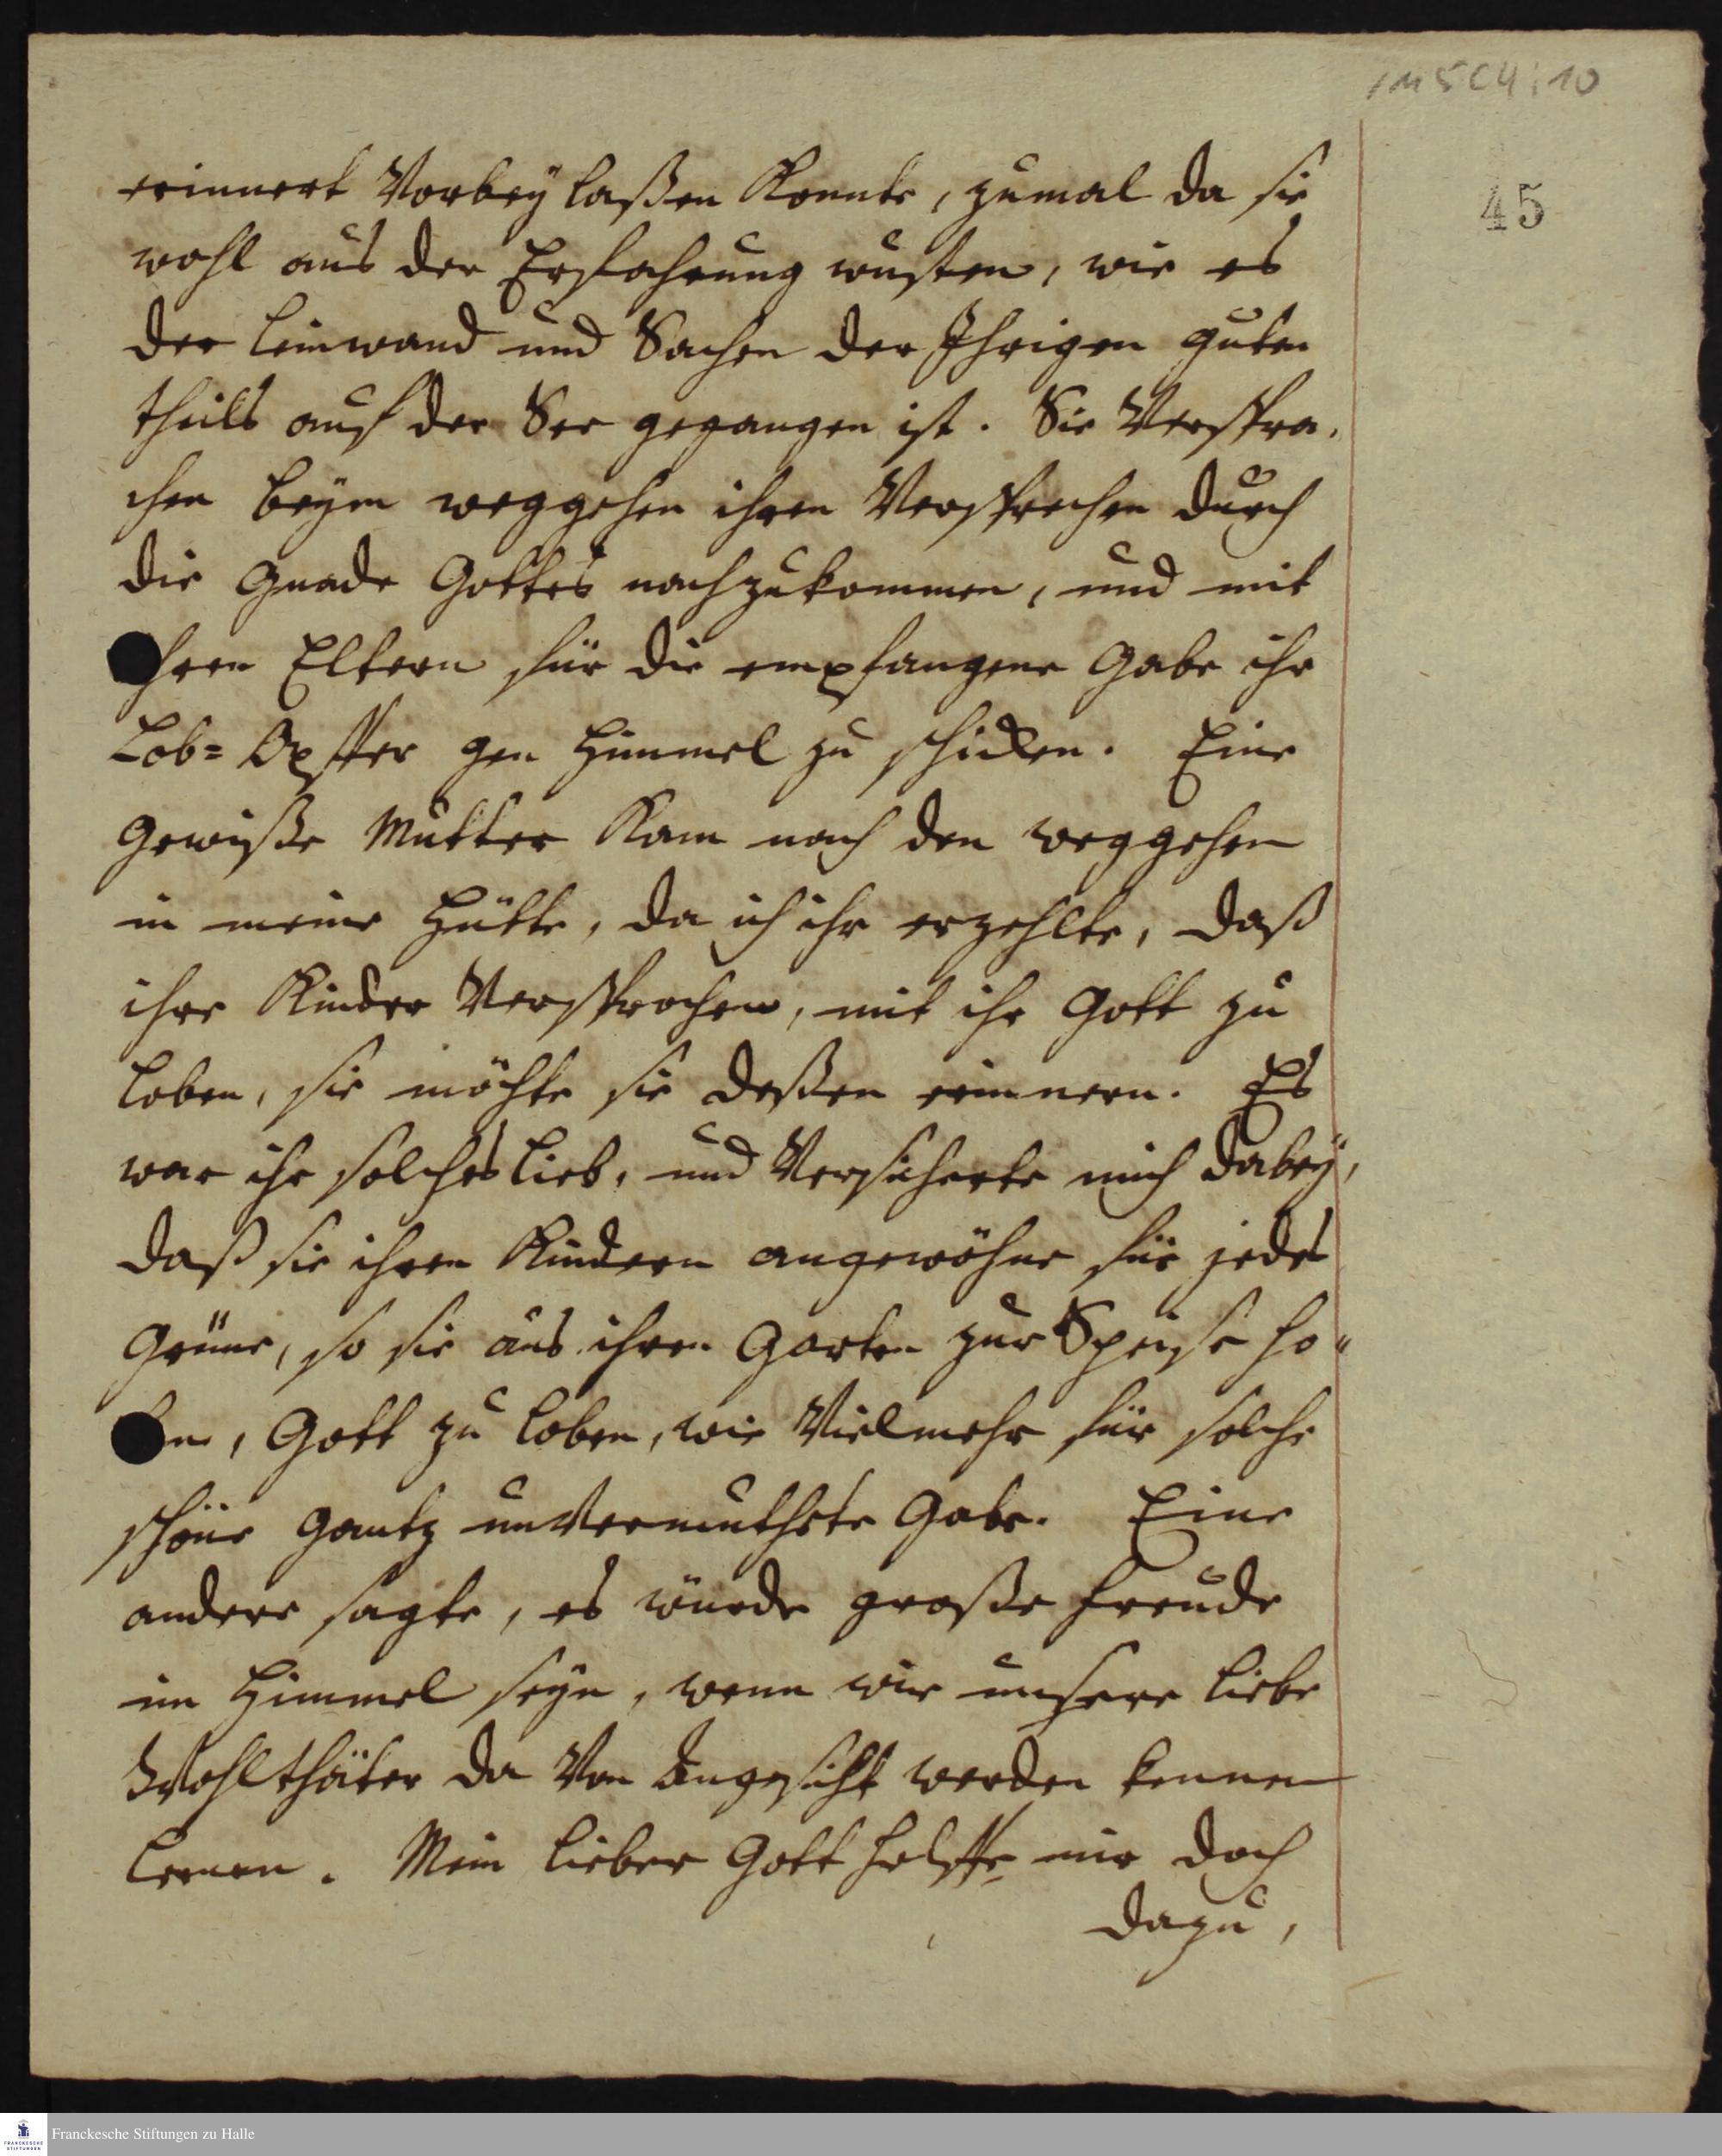 1M 5 C4 : 10
45
erinnert Vorbey laßen Konnte, zumal da sie
wohl aus der Ersfahrung wusten, wie es
der leinwand und Sachen der Ihrigen guten
theils auf der See gegangen ist. Sie Verspra-
chen beÿm weggehen ihren Versprechen durch
die Gnade Gottes nachzukommen, und mit
hren Eltern für die empfangene Gabe ihr
Lob= Opffer gen Himmel zu schicken. Eine
Gewiße Mutter Kam nach den weggehen
in meine Hütte, da ich ihr erzehlte, daß
ihre Kinder Versprochen, mit ihr Gott zu
loben, sie möchte sie deßen erinnern. Es
war ihr solches lieb, und Versicherte mich dabeÿ,
daß sie ihren Kindern angewöhne für jedes
Grüne, so sie aus ihren Garten zur Speise ho-
en, Gott zu loben, wie Vielmehr für solche
schöne gantz unvermuthete Gabe. Eine
andere sagte, es würde große Freude
im Himmel seyn, wenn wir unsere liebe
Wohlthäter da Von Angesicht werden kennen
lernen. Mein lieber Gott helffe mir doch
dazu,
Franckesche Stiftungen zu Halle
FRANCKESCHE
STIFTUNGEN